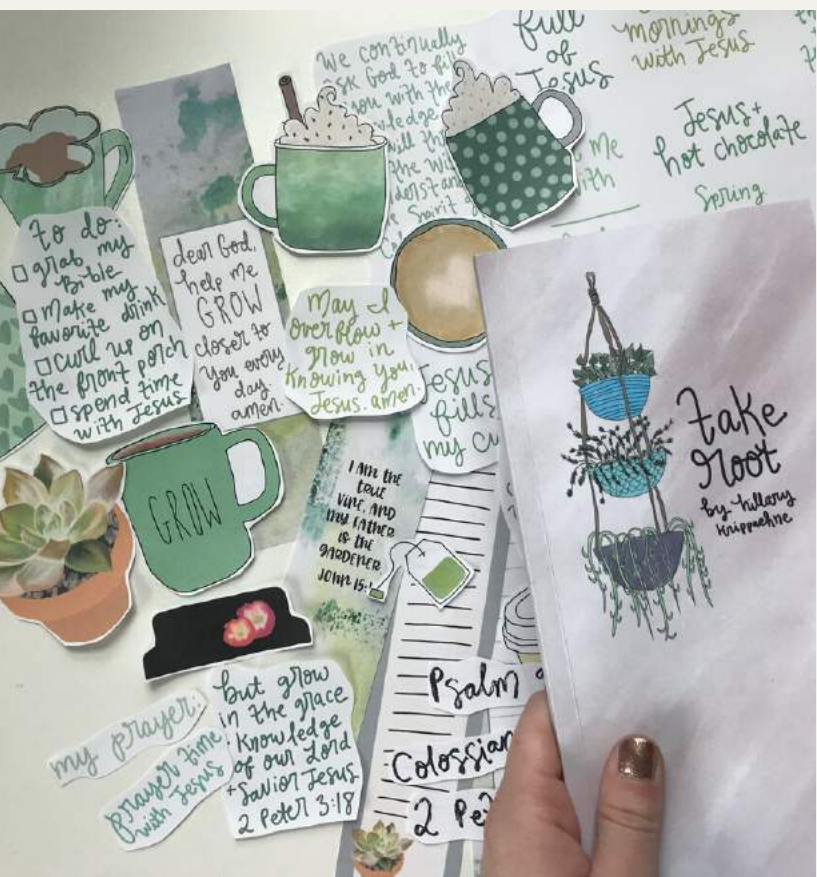 we continually
ask God to fill
you with the
full
of
Jesus
mornings
with Jesus
Jesus +
hot chocolate
me
with
Spring
to do:
grab my
Bible
make my
favorite drink
curl up on
the front porch
spend time
with Jesus
dear God,
help me
GROW
closer to
you every
day.
amen.
May I
overflow +
grow in
knowing you,
Jesus. amen.
Jesus
fills
my cu
GROW
I AM the
true
vine, and
my Father
is the
gardener
John 15:1
take
root
by hillary
krippaehne
Psalm
Colossian
2 Pet
my prayer:
prayer time
with Jesus
but grow
in the grace
+ knowledge
of our Lord
+ Savior Jesus
2 Peter 3:18